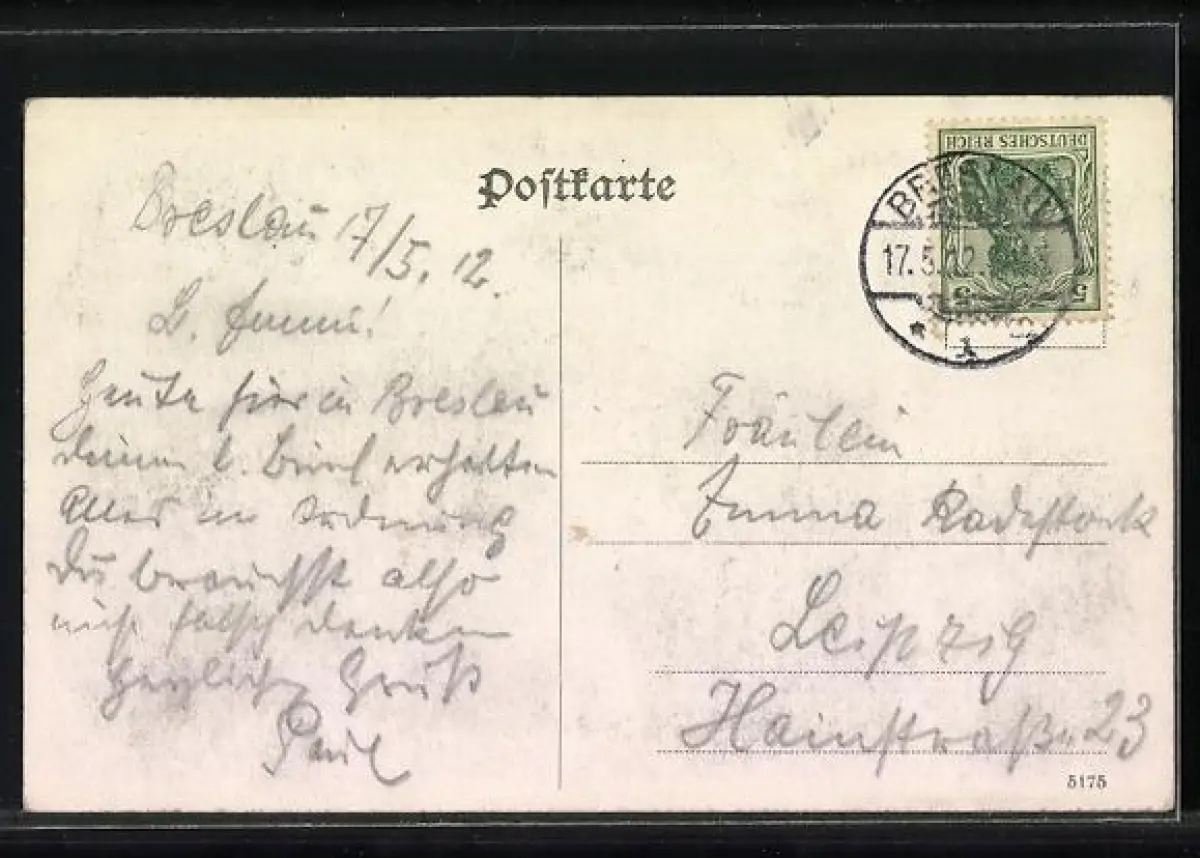 Postkarte
DEUTSCHES REICH
5 5
BRESLAU
17.5.12
* 1
Breslau 17/5. 12.
L. Emmi!
Heute hier in Breslau
deinen l. Brief erhalten
Alles in Ordnung
Du brauchst also
nich falsch denken
Herzlichen Gruß
Paul
Fräulein
Emma Radestock
Leipzig
Hainstraße 23
5175